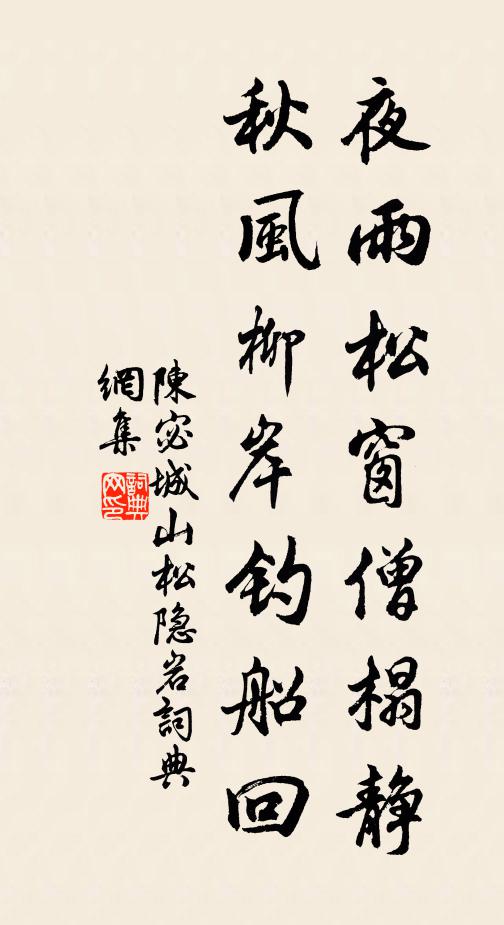 夜雨松窗僧榻静
秋風柳岸钓船回
陳宓城山松隐岩詞典
網集
詞典
网印